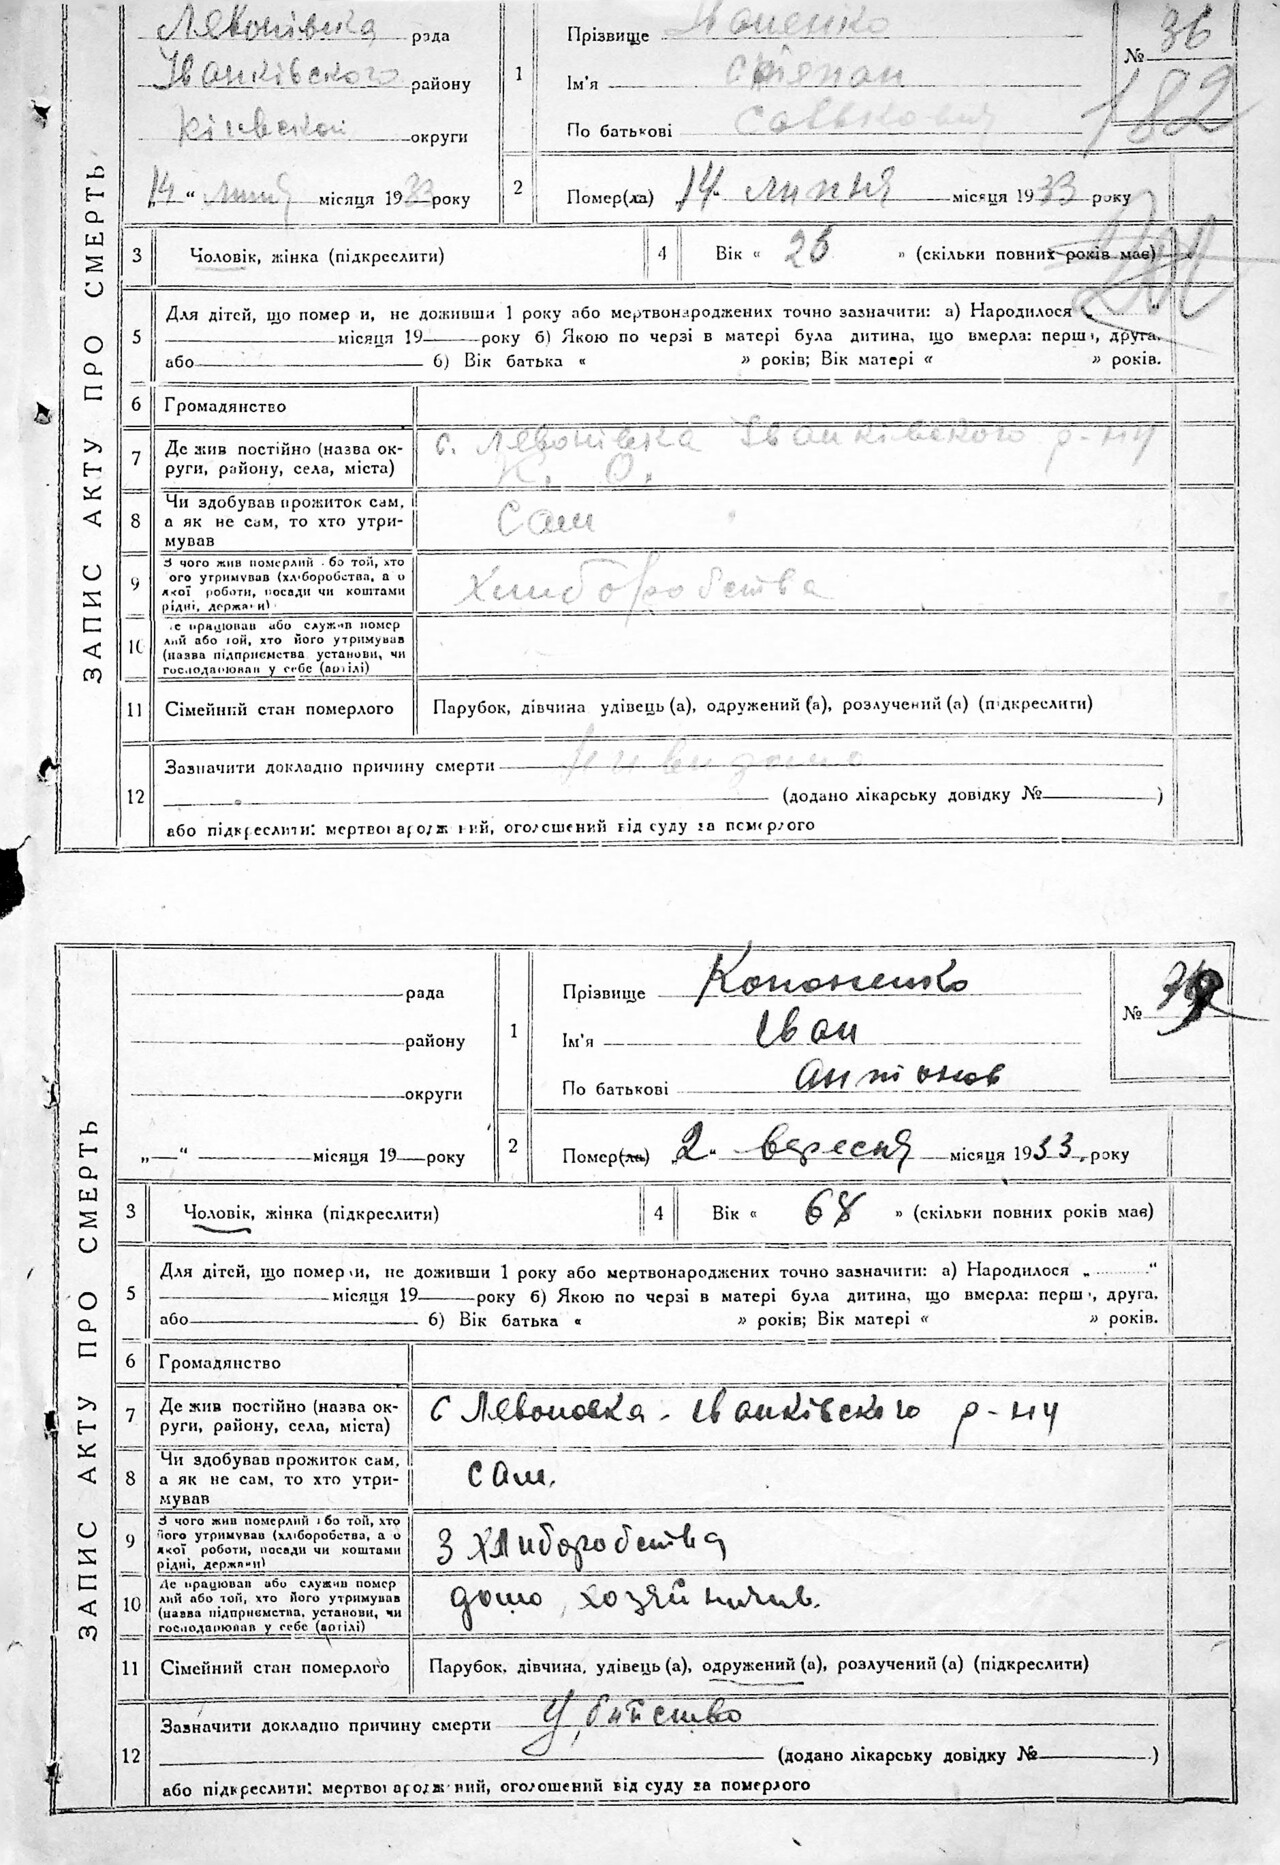 ЗАПИС АКТУ ПРО СМЕРТЬ
Левонівка рада
Іванківского району
округи
„14“ липня місяця 1933 року
1
Прізвище Іваненко
Ім'я Степан
По батькові Савкович
№ 36
182
2
Помер(ла) „14“ липня місяця 1933 року
3 Чоловік, жінка (підкреслити)
4 Вік « 25 » (скільки повних років має)
5
Для дітей, що померли, не доживши 1 року або мертвонароджених точно зазначити: а) Народилося „ “
місяця 19 року б) Якою по черзі в матері була дитина, що вмерла: перша, друга,
або б) Вік батька « » років; Вік матері « » років.
6 Громадянство
7
Де жив постійно (назва ок-
руги, району, села, міста)
с. Левонівка Іванківского р-ну
К. О.
8
Чи здобував прожиток сам,
а як не сам, то хто утри-
мував
сам
9
З чого жив померлий або той, хто
його утримував (хліборобства, а о
якої роботи, посади чи коштами
рідні, держави)
хлиборобства
10
Де працював або служив помер
лий або той, хто його утримував
(назва підприємства установи, чи
господарював у себе (артілі)
11 Сімейний стан померлого
Парубок, дівчина удівець (а), одружений (а), розлучений (а) (підкреслити)
12
Зазначити докладно причину смерти
(додано лікарську довідку № )
або підкреслити: мертвонароджений, оголошений від суду за померлого
ЗАПИС АКТУ ПРО СМЕРТЬ
рада
району
округи
„ “ місяця 19 року
1
Прізвище Кононенко
Ім'я Іван
По батькові Антонов
№
2
Помер(ла) „2. вересня місяця 1933. року
3 Чоловік, жінка (підкреслити)
4 Вік « 68 » (скільки повних років має)
5
Для дітей, що померли, не доживши 1 року або мертвонароджених точно зазначити: а) Народилося „ “
місяця 19 року б) Якою по черзі в матері була дитина, що вмерла: перша, друга,
або б) Вік батька « » років; Вік матері « » років.
6 Громадянство
7
Де жив постійно (назва ок-
руги, району, села, міста)
с Левоновка. Іванківского р-ну
8
Чи здобував прожиток сам,
а як не сам, то хто утри-
мував
сам.
9
З чого жив померлий або той, хто
його утримував (хліборобства, а о
якої роботи, посади чи коштами
рідні, держави)
З хлиборобства
10
Де працював або служив помер
лий або той, хто його утримував
(назва підприємства, установи, чи
господарював у себе (артілі)
дома, хозяйничив.
11 Сімейний стан померлого
Парубок, дівчина, удівець (а), одружений (а), розлучений (а) (підкреслити)
12
Зазначити докладно причину смерти Убийство
(додано лікарську довідку № )
або підкреслити: мертвонароджений, оголошений від суду за померлого